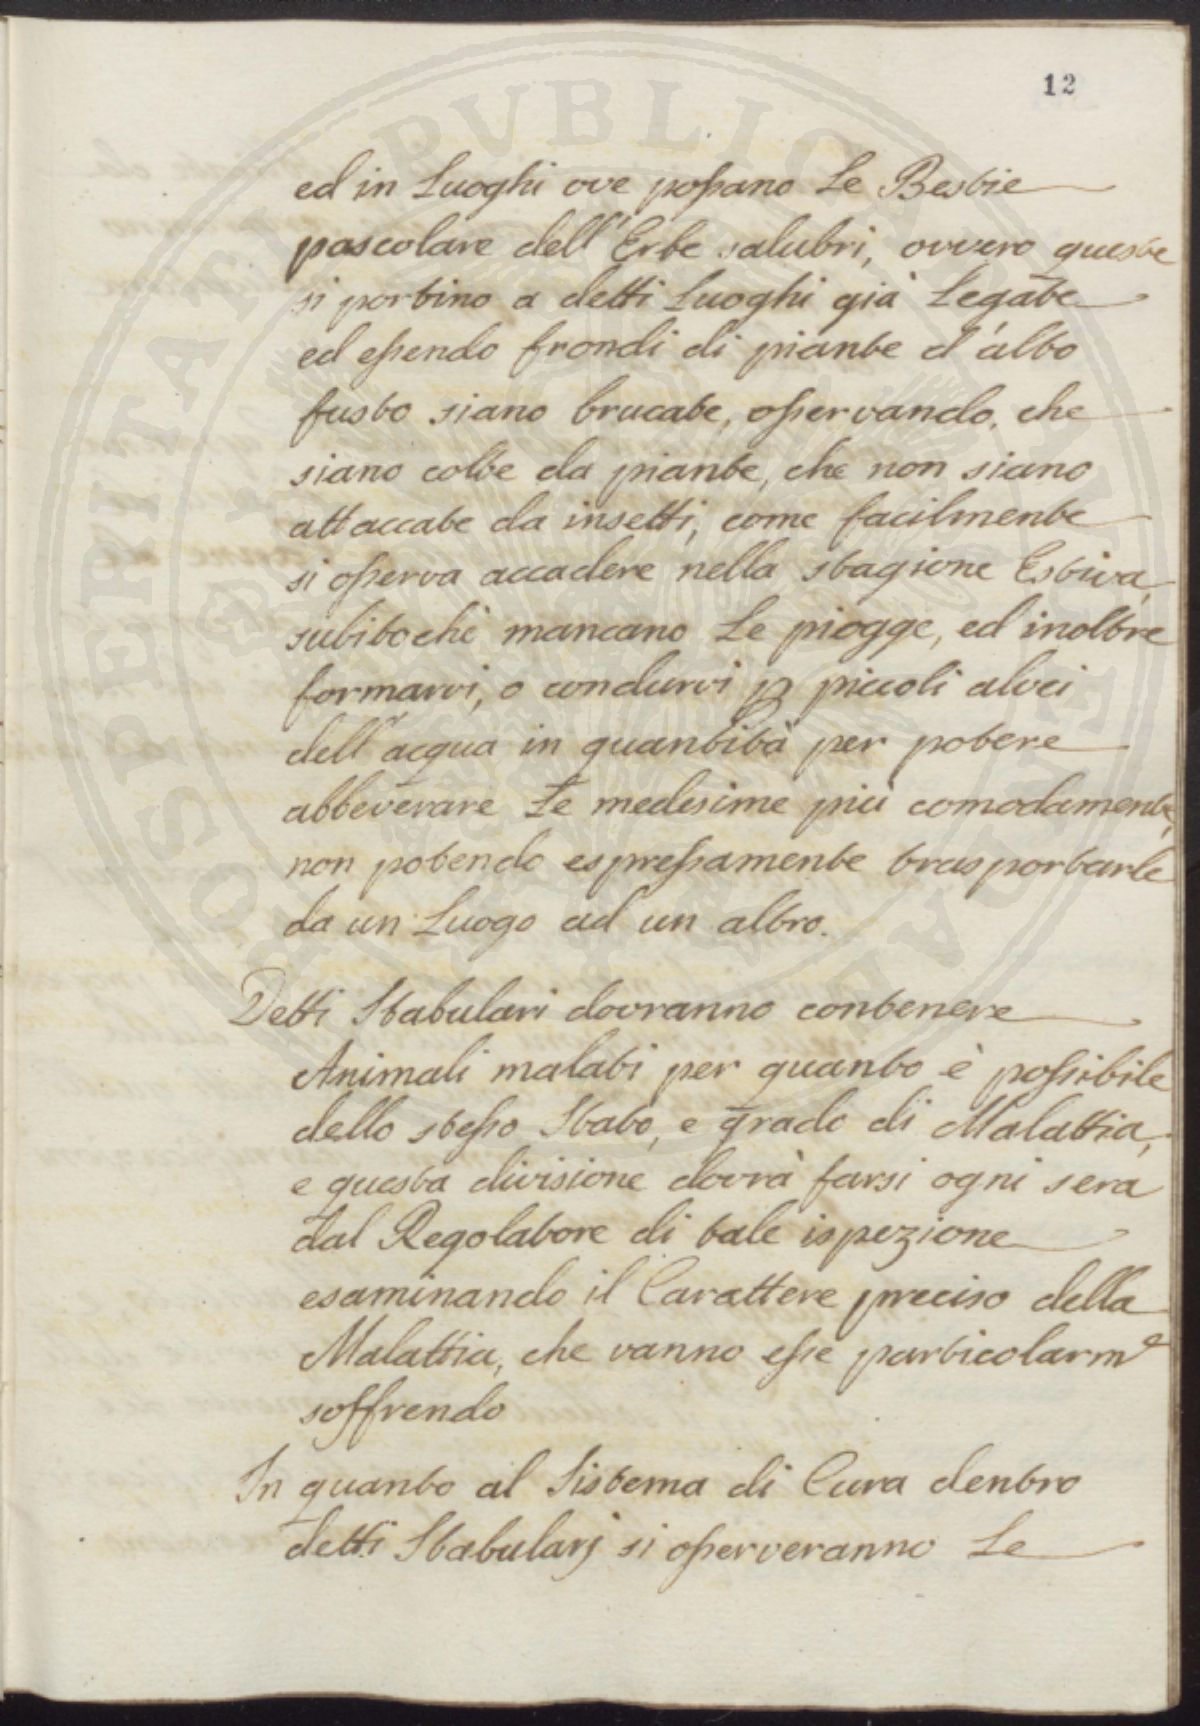 12
ed in Luoghi ove possano Le Bestie
pascolare dell'Erbe salubri, ovvero queste
si portino a detti Luoghi già Legate
ed essendo frondi di piante d'alto
fusto siano brucate, osservando, che
siano colte da piante, che non siano
attaccate da insetti, come facilmente
si osserva accadere nella stagione Estiva,
subitochè mancano Le piogge, ed inoltre
formarvi, o condurvi p piccoli alvei
dell'acqua in quantità per potere
abbeverare Le medesime più comodamente,
non potendo espressamente trasportarle
da un Luogo ad un altro.
Detti Stabulari dovranno contenere
Animali malati per quanto è possibile
dello stesso Stato, e grado di Malattia,
e questa divisione dovrà farsi ogni sera
dal Regolatore di tale ispezione
esaminando il Carattere preciso della
Malattia, che vanno esse particolarme
soffrendo
In quanto al Sistema di Cura dentro
detti Stabularj si osserveranno Le
PROSPERITATI PUBLICAE AUGENDAE